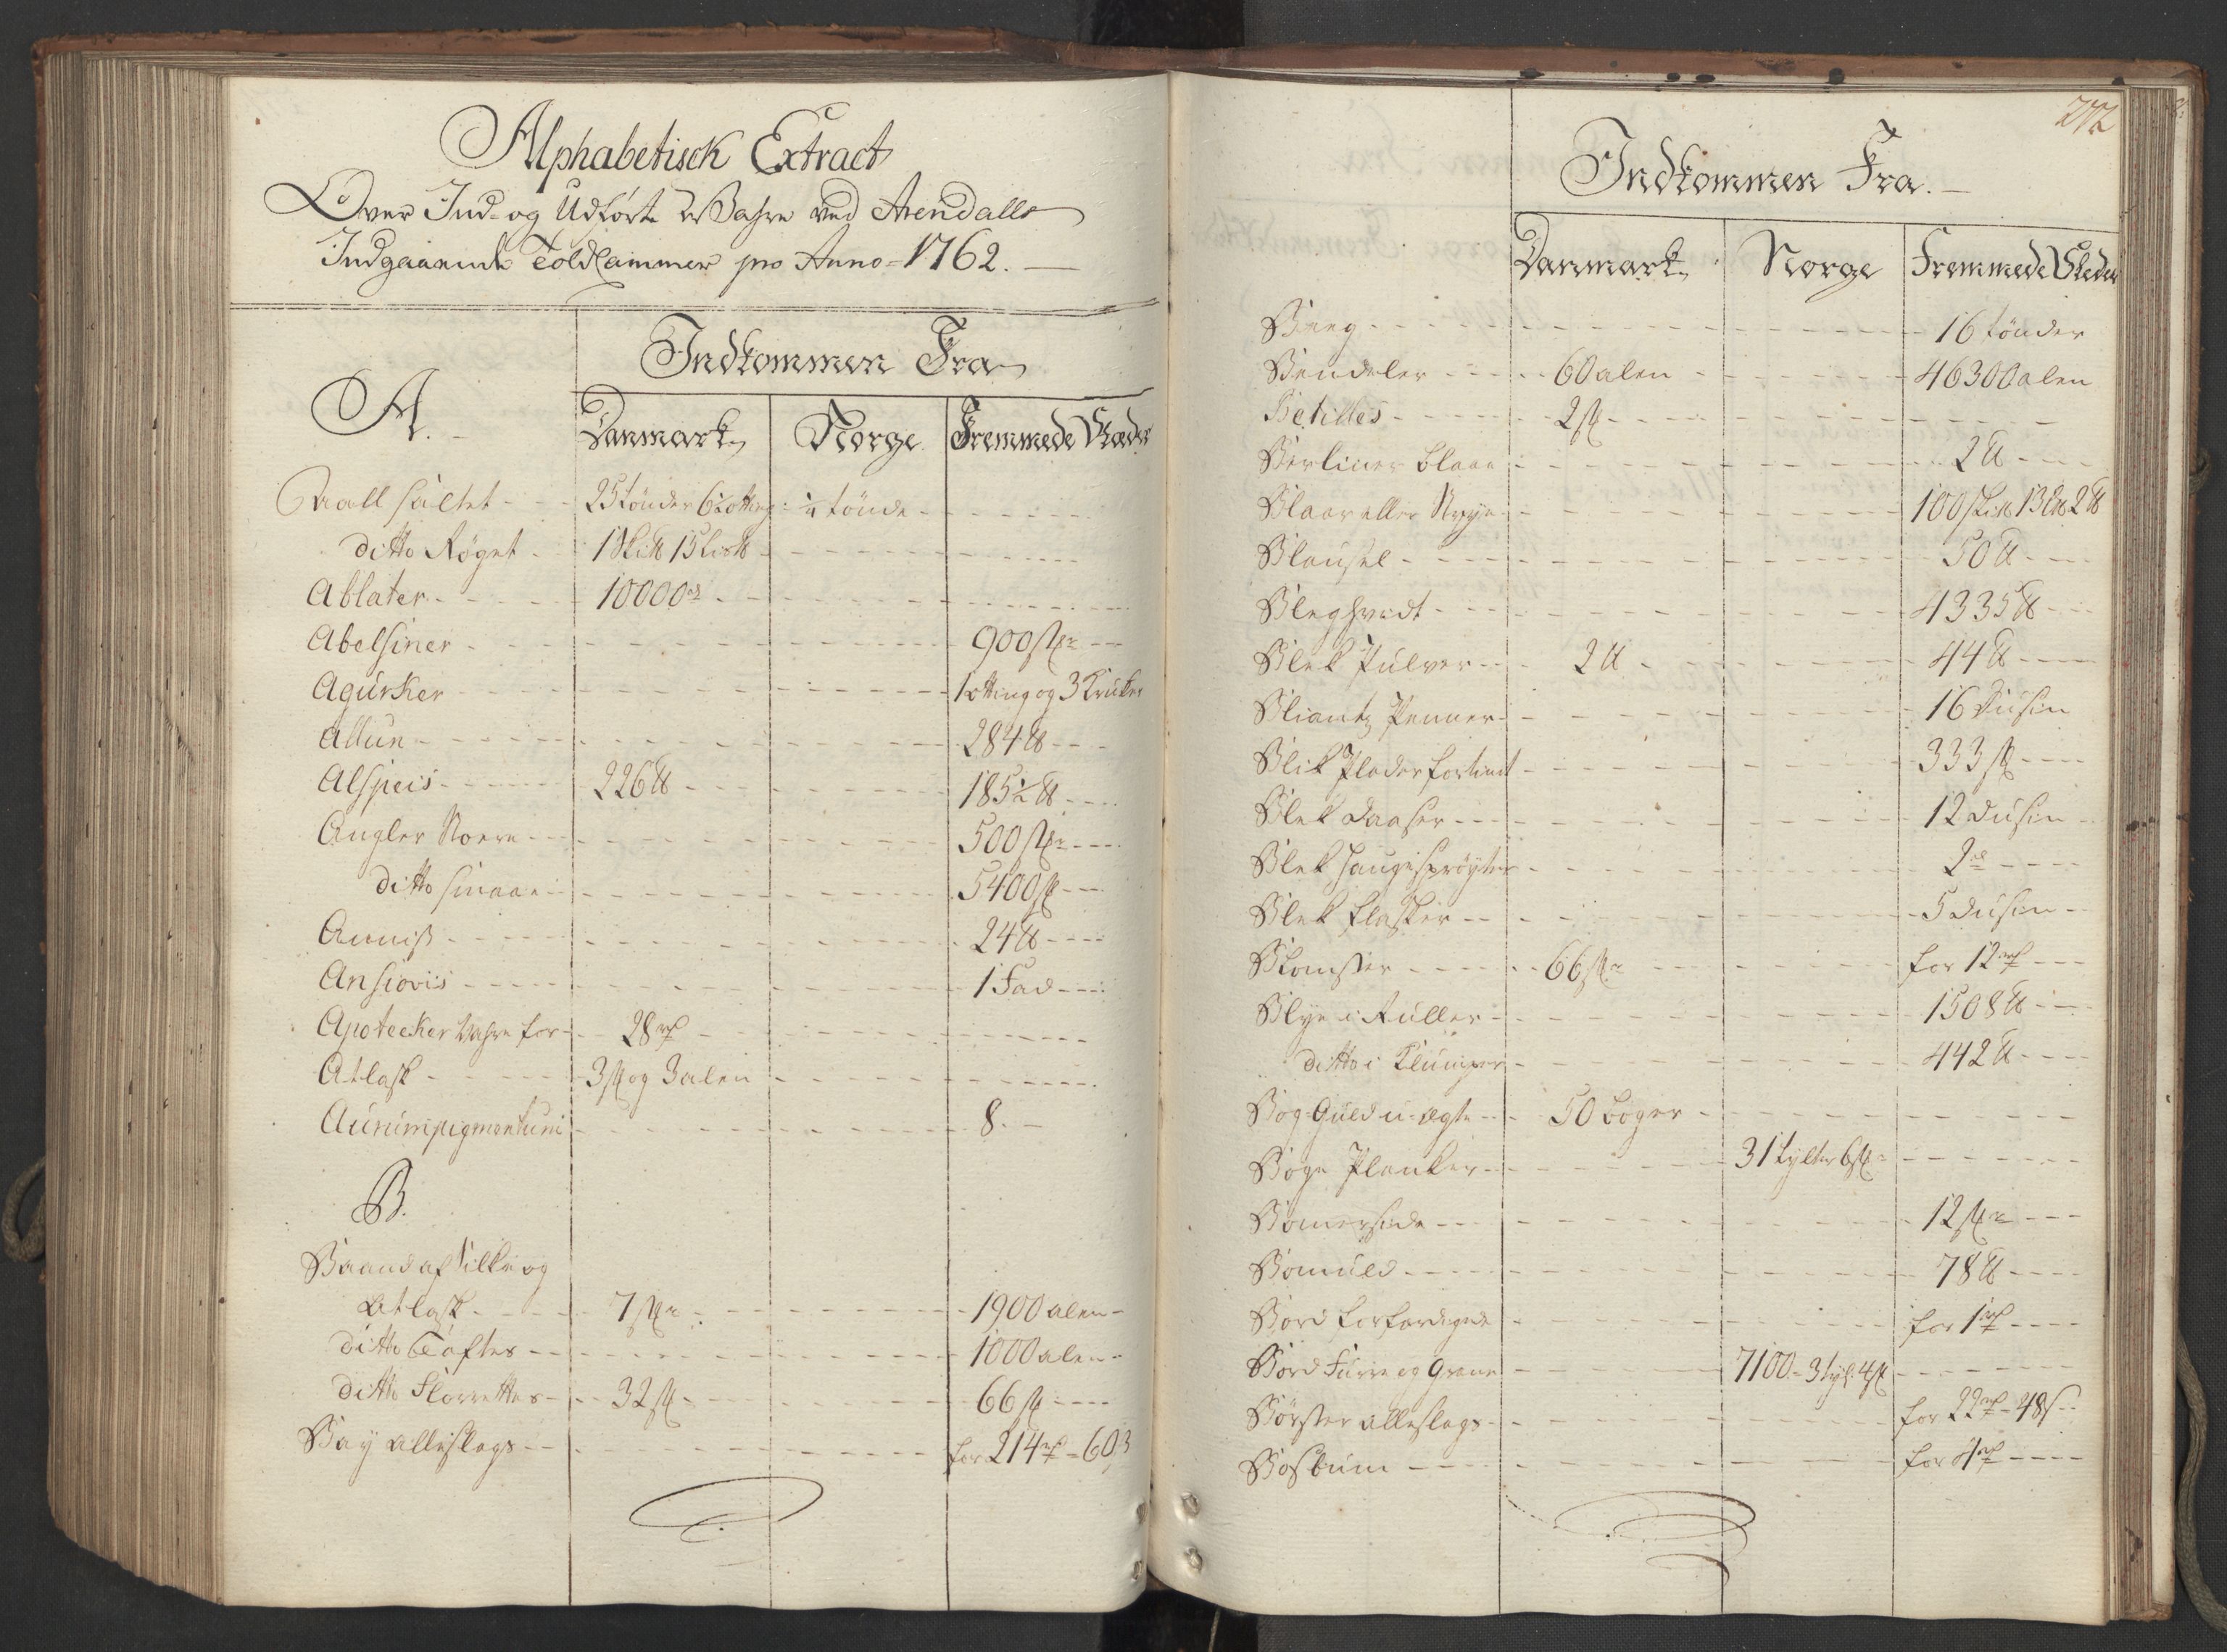 Alphabetisck Extract
Over Ind- og Udførte Wahre ved Arendalls
Indgaaende Toldcammer pro Anno = 1762.
Indkommen Fra
A.
Danmark Norge Fremmede Stæder
Aall saltet 25 tönder 6½ otting ½ tönde
ditto Røget 1 Skit 15 Lis℔
Ablater 10000
Abelsiner 900 stk
Agurker 1 otting og 3 Kruker
Allun 284 ℔
Alspeis 226 ℔ 185½ ℔
Angler Store 500 stk
ditto smaae 5400 stk
Anniss 24 ℔
Ansiovis 1 Fad
Apotecker Vahre for 28 rd
Atlask 3 stk og 3 alen
Auripigmentum 8
B.
Baand af silke og
Atlask 7 stk 1900 alen
ditto Taftes 1000 alen
ditto Florrettes 32 stk 66 stk
Bay alleslags for 214 rd = 60
272
Indkommen Fra.
Danmark Norge Fremmede Stæder
Beeg 16 tönder
Bendeler 60 alen 46300 alen
Betilles 2 stk
Berliner blaae 2 ℔
Blaar eller 100 skit 13 L℔ 2 ℔
50 ℔
Bleghvidt 4335 ℔
Blek Pulver 2 ℔ 44 ℔
Bliantz Penner 16 Dusin
Blik Plader fortint 333 stk
Blek Daaser 12 dusin
Blek Haugesprøyter 2
Blek Flasker 5 dusin
Blomster 66 stk for 12 rd
Blye i Ruller 1508 ℔
ditto i Klumper 442 ℔
Bog-Guld u-ægte 50 bøger
Bøge Planker 31 tylter 6 stk
12 stk
Bomuld 78 ℔
Bord forfærdigede for 1 rd
Bord Furre og Grane 7100 = 3 tyl: 4 stk
Børster alleslags for 22 rd = 48 s
for 4 rd